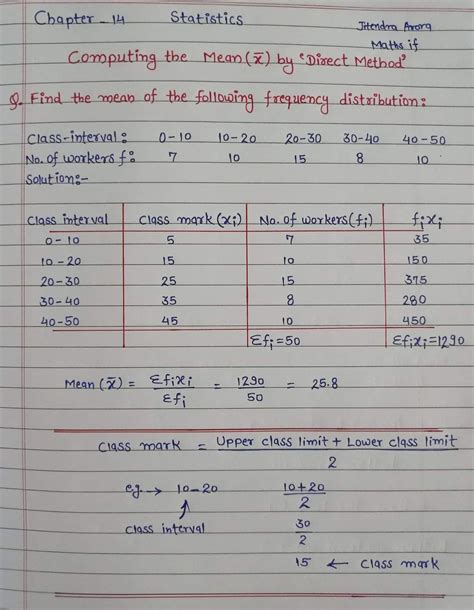 Chapter - 14 Statistics Jitendra Arora
Maths if
Computing the Mean (x̄) by 'Direct Method'
Q. Find the mean of the following frequency distribution:
Class-interval: 0-10 10-20 20-30 30-40 40-50
No. of workers f: 7 10 15 8 10
Solution:-
Class interval Class mark (xi) No. of workers (fi) fixi
0-10 5 7 35
10-20 15 10 150
20-30 25 15 375
30-40 35 8 280
40-50 45 10 450
Σfi = 50 Σfixi = 1290
Mean (x̄) = Σfixi / Σfi = 1290 / 50 = 25.8
Class mark = Upper class limit + Lower class limit / 2
eg. → 10-20 10+20 / 2
↑
Class interval 30 / 2
15 ← Class mark